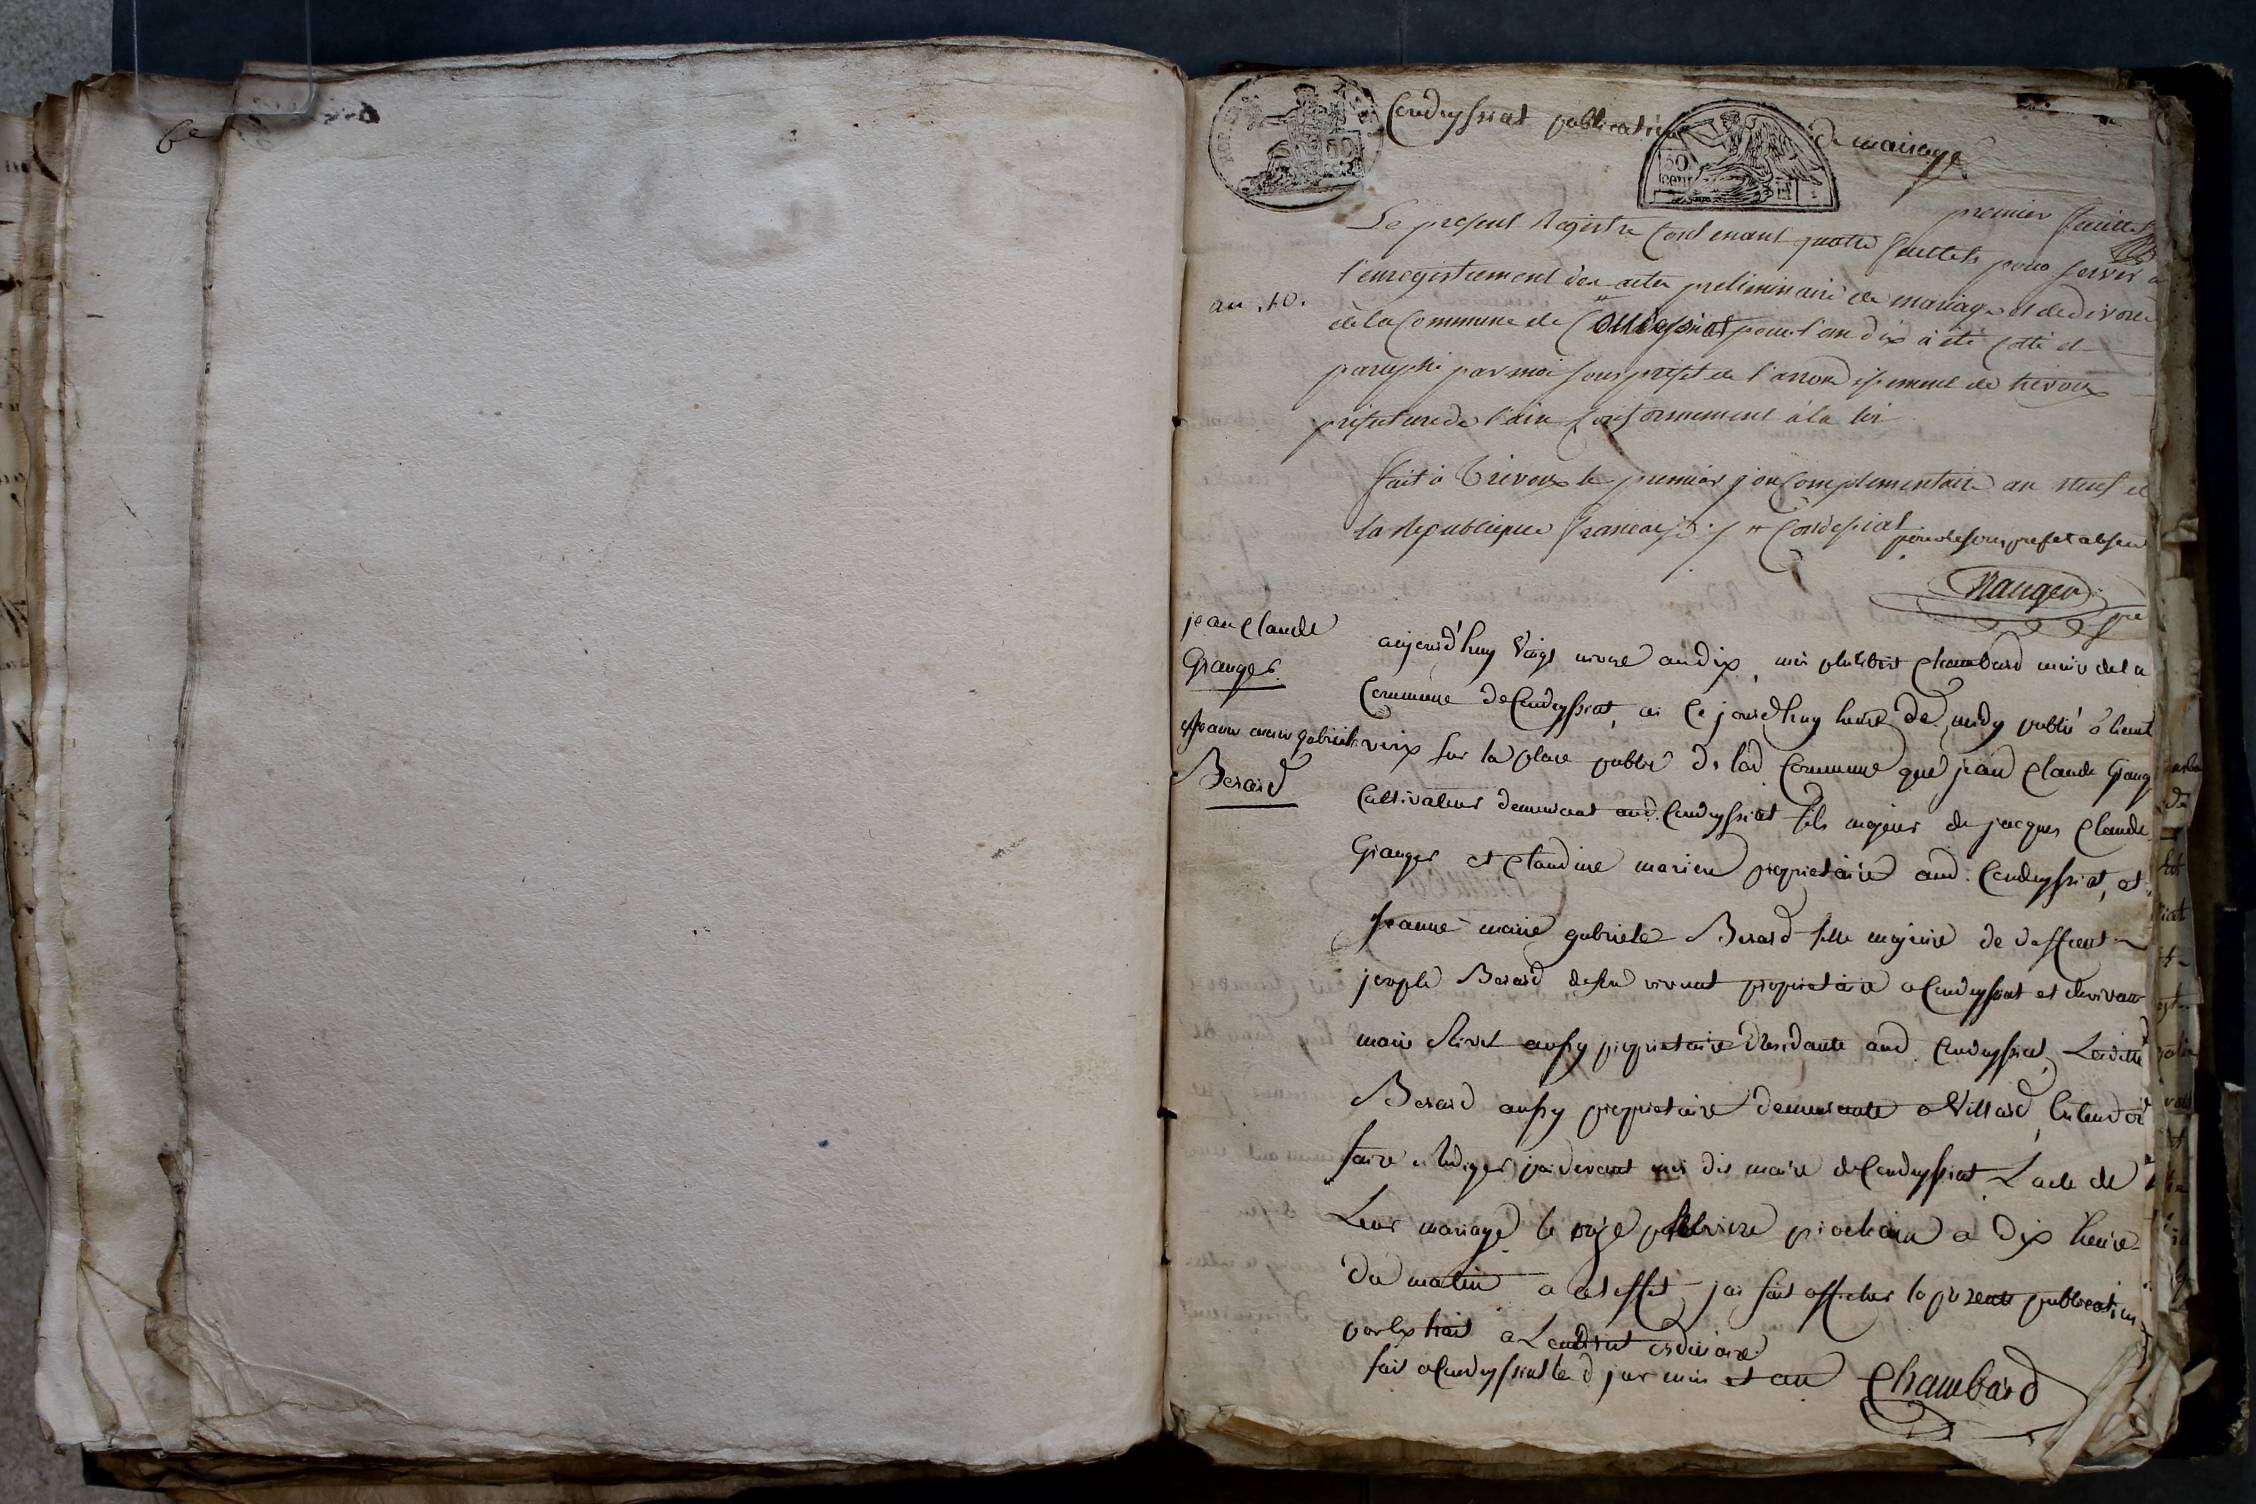 6e
Condeyssiat publication de mariage
50
cent
premier feuillet
Le present Registre contenant quatre feuillets pour servir a
l'enregistrement des actes preliminaire de mariage et de divorce
an .10.
de la Commune de Condeyssiat pour l'an dix a été cotté et
paraphé par moi sous prefet de l'arrondissement de trevoux
prefecture de l'ain conformement à la loi
fait à Trevoux le premier jour complementaire an neuf de
la Republique francaise. Condessiat
pour le sous prefet absent
jean Claude
Granger
Jeanne marie gabriele
Berard
aujourd'huy vingt nivose an dix, moi philibert Chambard maire de la
Commune de Condeyssiat, ai ce jourd'huy heure de midy publié à haute
voix sur la place publie de lad Commune que jean Claude Grang
Cultivateur demeurant aud. Condeyssiat fils majeur de jacques Claude
Granger et Claudine proprietaire aud. Condeyssiat, et
Jeanne marie gabriele Berard fille majeure de deffunt
joseph Berard de son vivant proprietaire a Condeyssiat et de vivante
marie aussy proprietaire Residante aud. Condeyssiat, Laditte
Berard aussy proprietaire demeurante a Villard, Entend
faire Rediger par devant moi dit maire de Condeyssiat L'acte de
Leur mariage le pluviose prochain a dix heure
du matin a cet effet j'ai fait afficher la presente publication
par Extrait a Lendroit ordinaire
fait a Condeyssiat les d jour mois et an Chambard